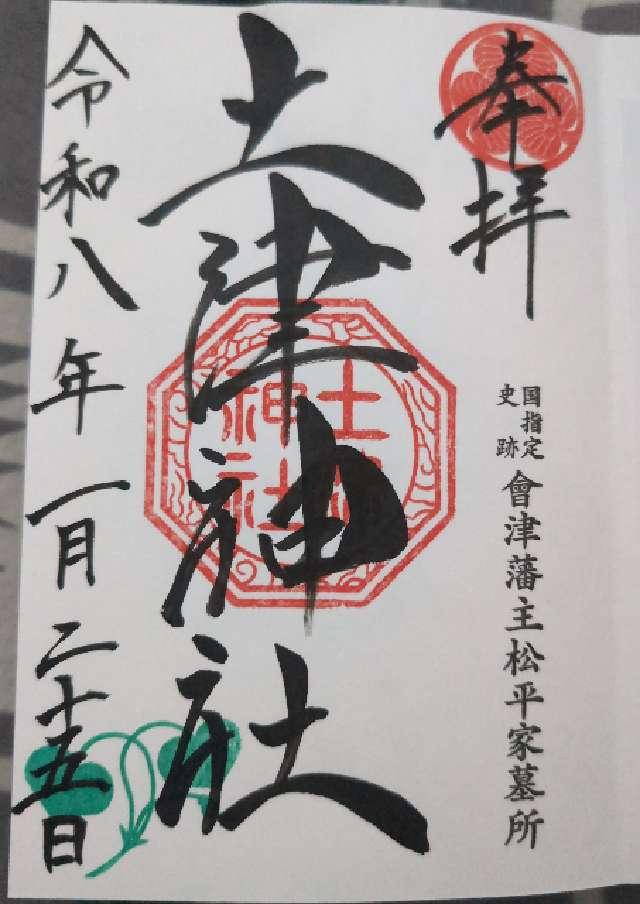 奉拝
国指定史跡
會津藩主松平家墓所
土津神社
土津神社
令和八年一月二十五日